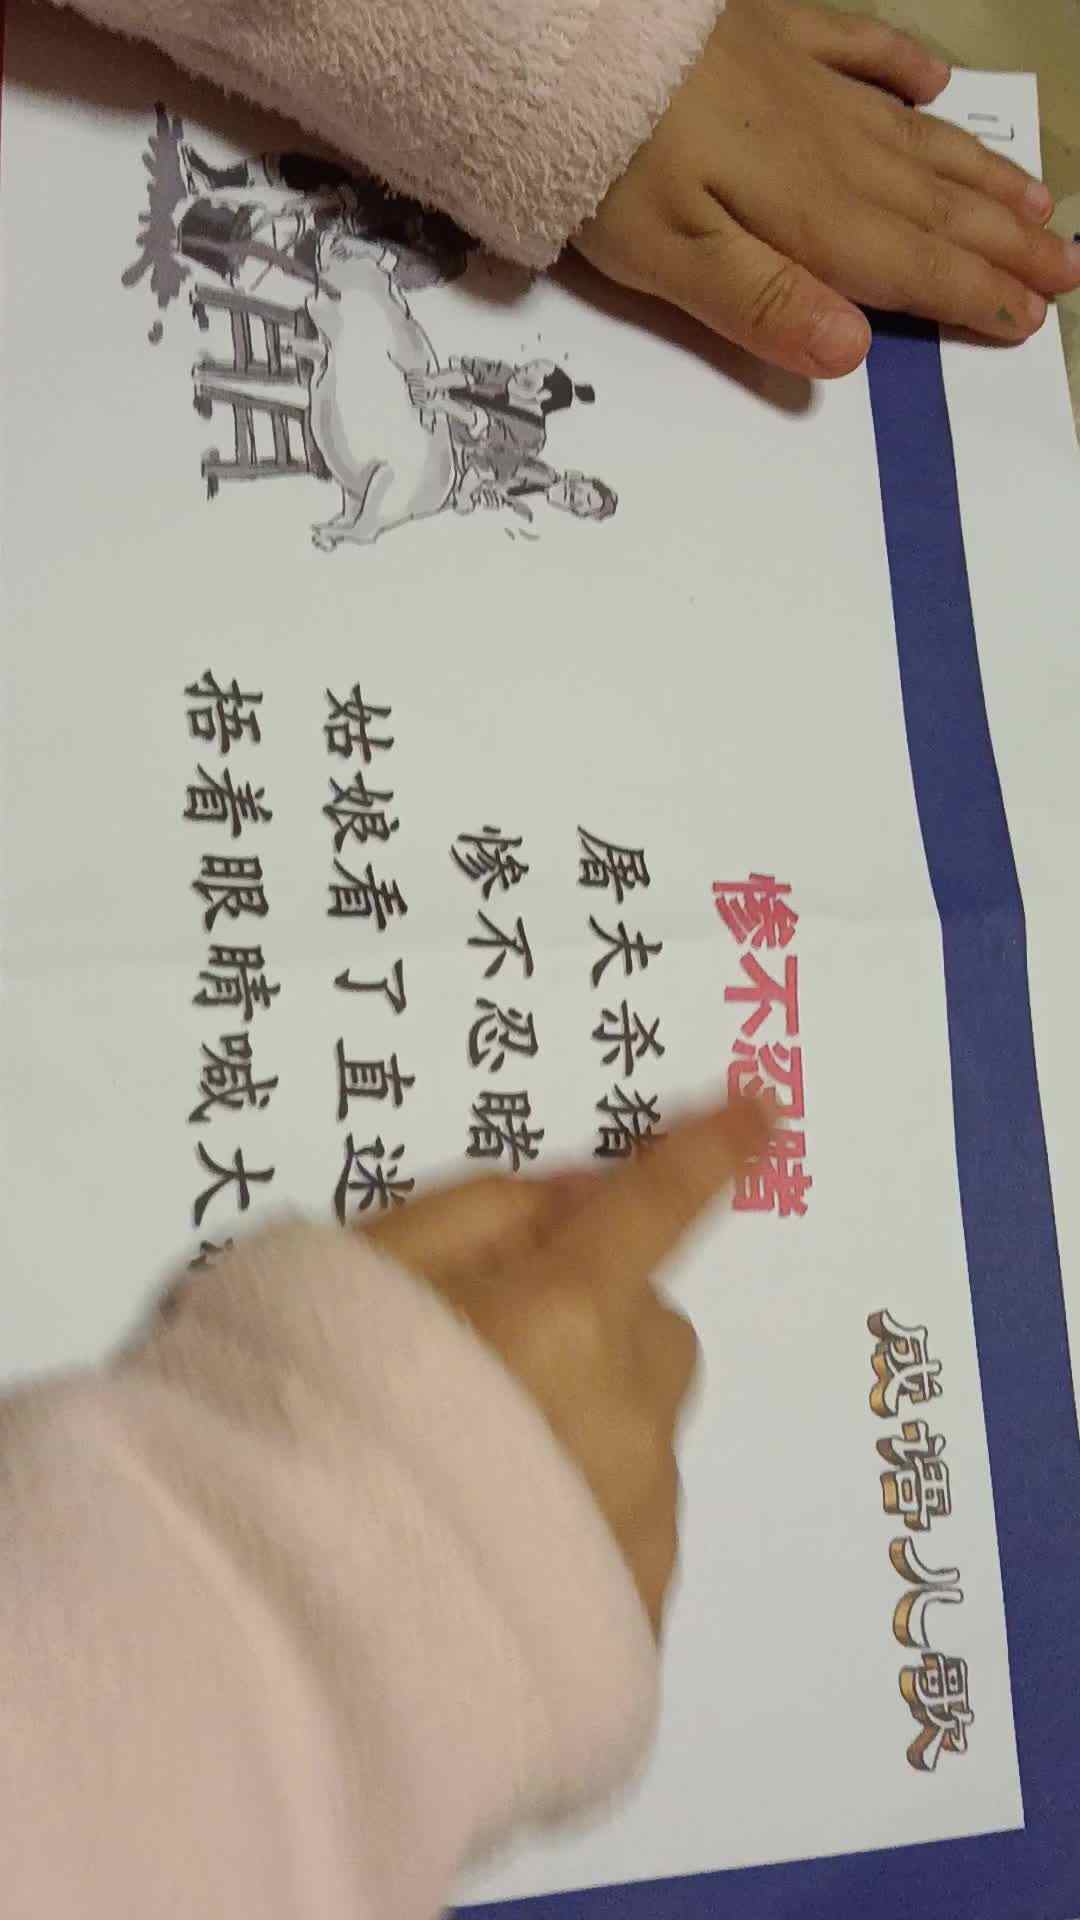 成语儿歌
惨不忍睹
屠夫杀猪
惨不忍睹
姑娘看了直迷
捂着眼睛喊大
17